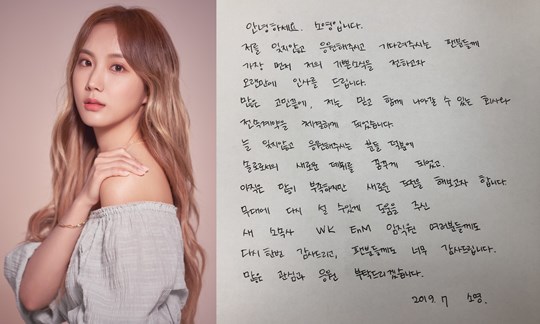 안녕하세요. 소영입니다.
저를 잊지않고 응원해주시고 기다려주시는 팬분들께
가장 먼저 저의 기쁜소식을 전하고자
오랜만에 인사를 드립니다.
많은 고민끝에, 저는 믿고 함께 나아갈 수 있는 회사와
전속계약을 체결하게 되었습니다.
늘 잊지않고 응원해주시는 분들 덕분에
솔로로서의 새로운 데뷔를 꿈꾸게 되었고,
아직은 많이 부족하지만 새로운 도전을 해보고자 합니다.
무대에 다시 설 수있게 도움을 주신
새 소속사 WK EnM 임직원 여러분들께도
다시한번 감사드리고, 팬분들께도 너무 감사드립니다.
많은 관심과 응원 부탁드리겠습니다.
2019. 7 소영.